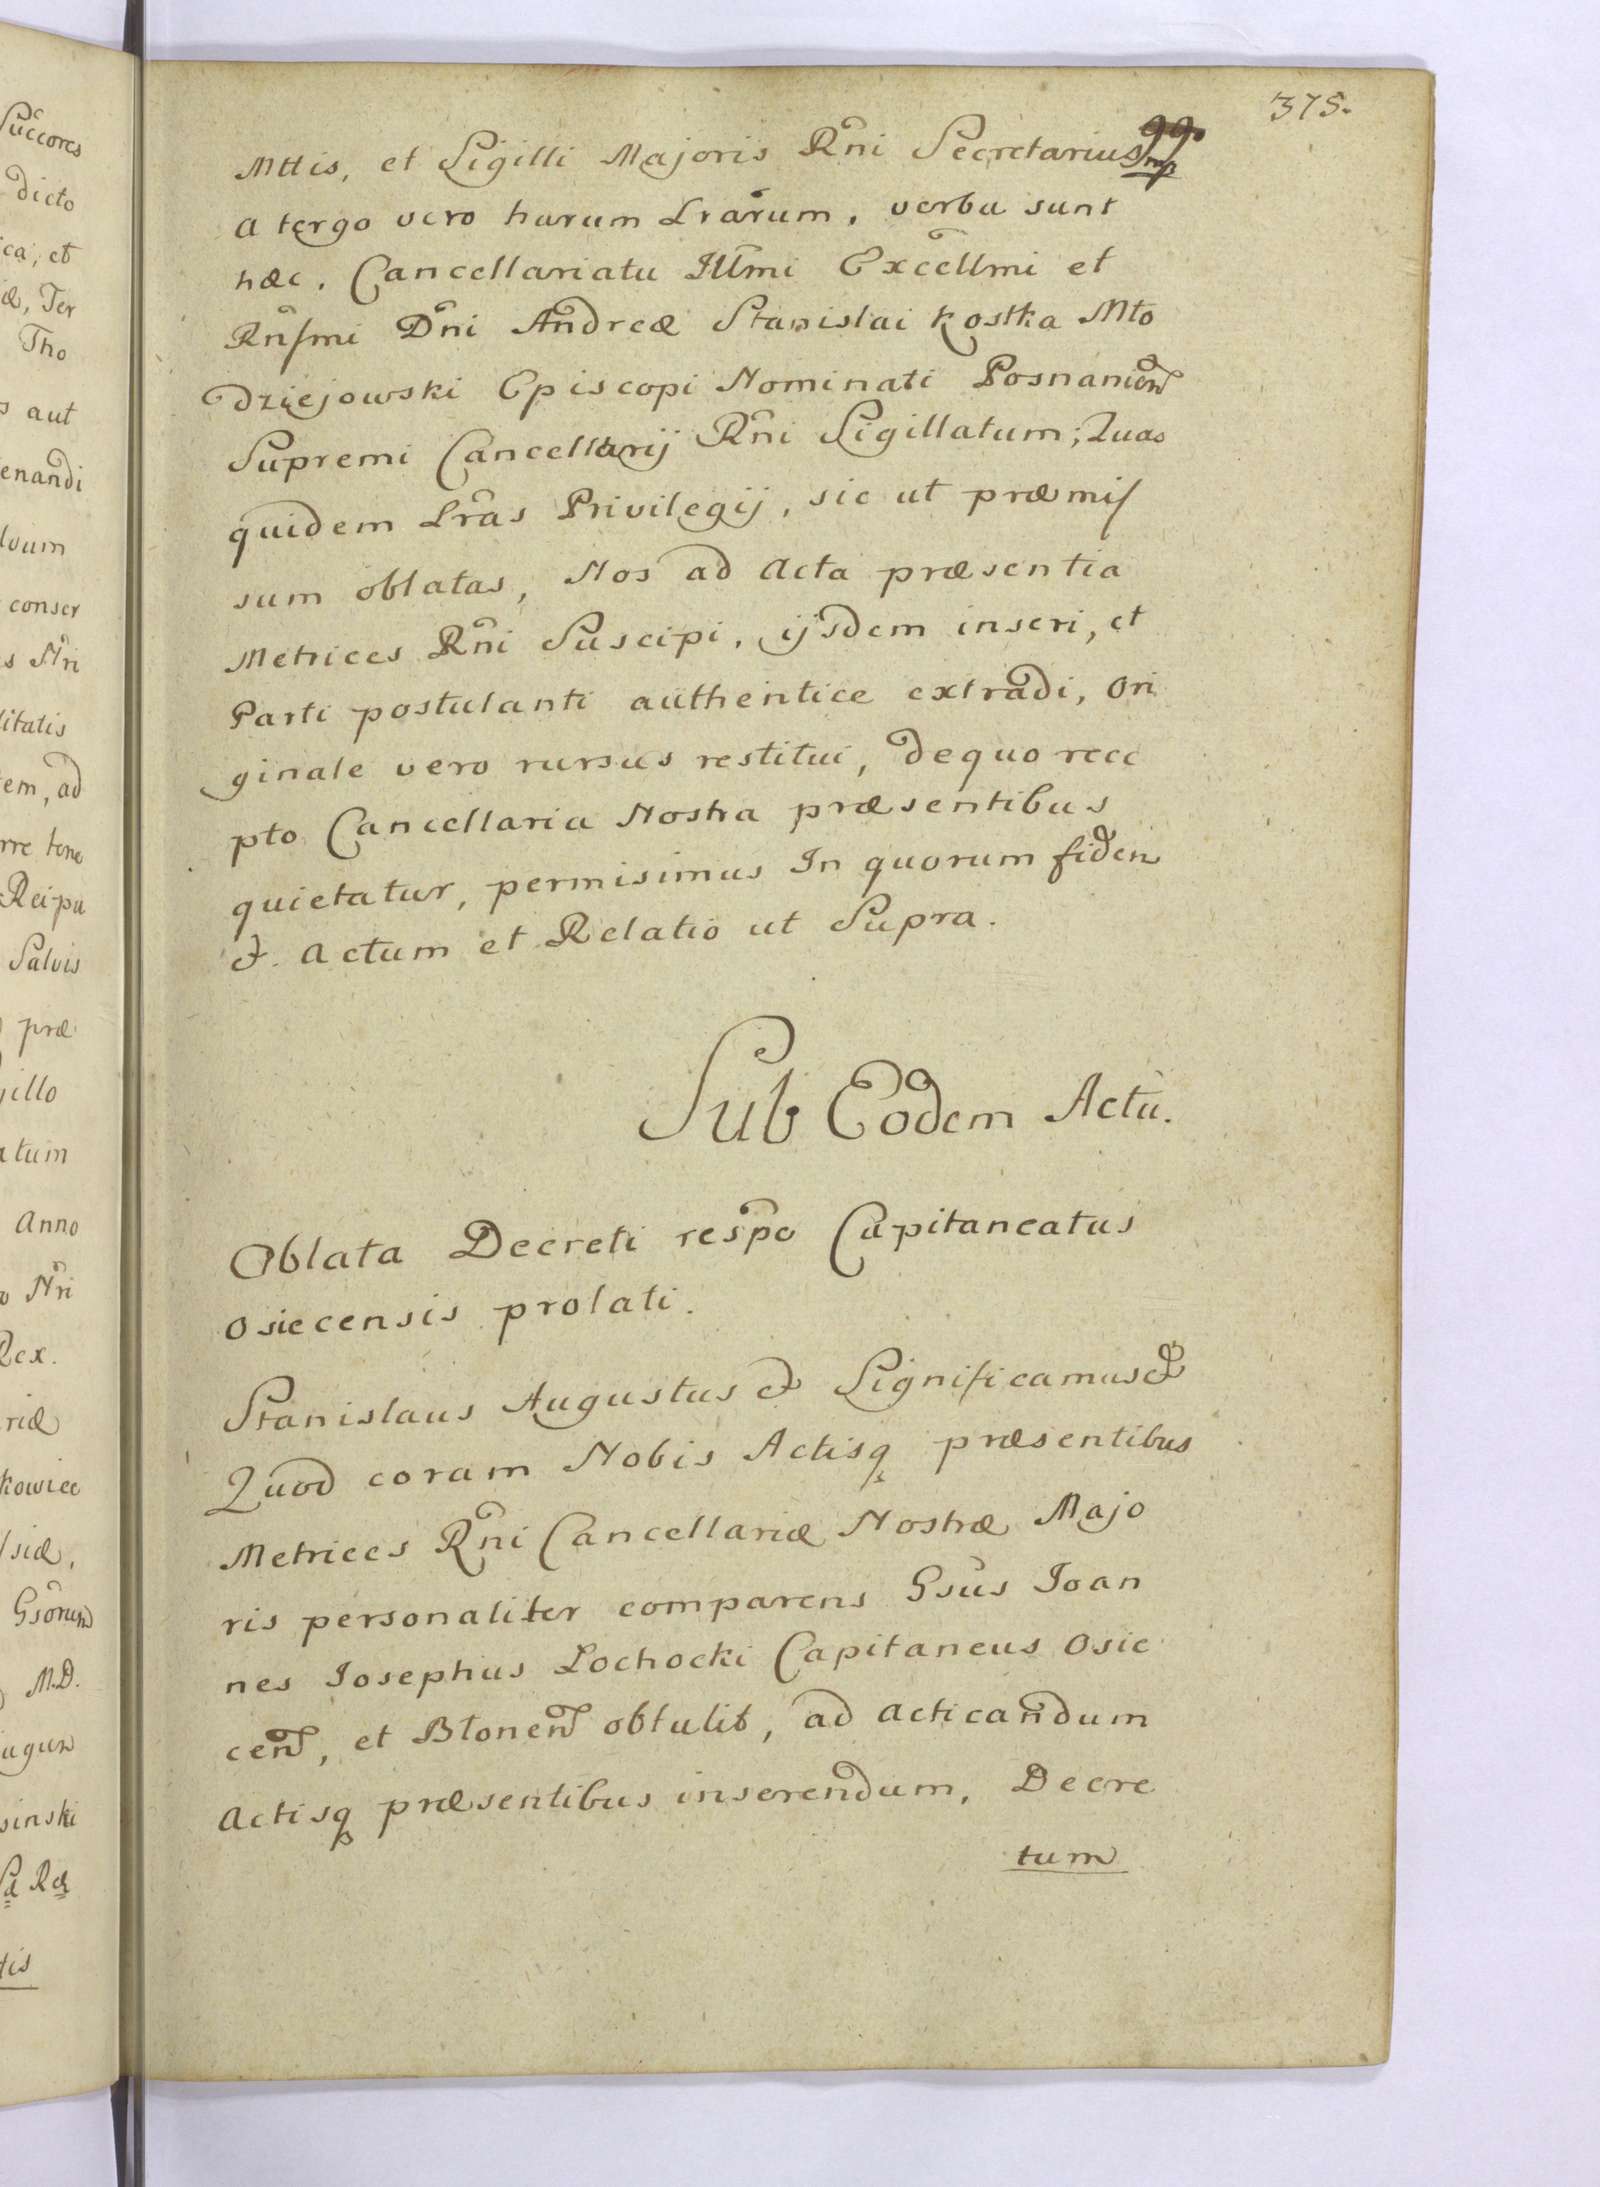 375.
Mttis, et Sigilli Majoris Rñi Secretarius mp
a tergo vero harum Lrarum, verba sunt
hæc. Cancellariatu Illmi Excellmi et
Rnſmi Dñi Andreæ Stanislai Kostka Mło
dziejowski Episcopi Nominati Posnanien
Supremi Cancellarij Rñi Sigillatum; Quas
quidem Lras Privilegij, sic ut præmiſ
sum oblatas, Nos ad Acta præsentia
Metrices Rñi Suscipi, ijsdem inseri, et
Parti postulanti authentice extradi, Ori
ginale vero rursus restitui, de quo rece
pto Cancellaria Nostra præsentibus
quietatur, permisimus In quorum fidem
&. Actum et Relatio ut Supra.
Sub Eodem Actu.
Oblata Decreti respo Capitaneatus
Osiecensis prolati.
Stanislaus Augustus & Significamus &
Quod coram Nobis Actisq præsentibus
Metrices Rñi Cancellariæ Nostræ Majo
ris personaliter comparens Gsus Ioan
nes Iosephus Łochocki Capitaneus Osie
cen, et Błonen obtulit, ad acticandum
Actisq præsentibus inserendum, Decre
tum
Succores
dicto
ca, et
æ, Ter
Tho
aut
enandi
lvum
conser
s Nri
litatis
em, ad
rre tene
Reipu
Salvis
præ
gillo
atum
Anno
o Nri
Rex.
riæ
kowice
ſsiæ,
Gsorum
M.D.
ugum
sinski
tis